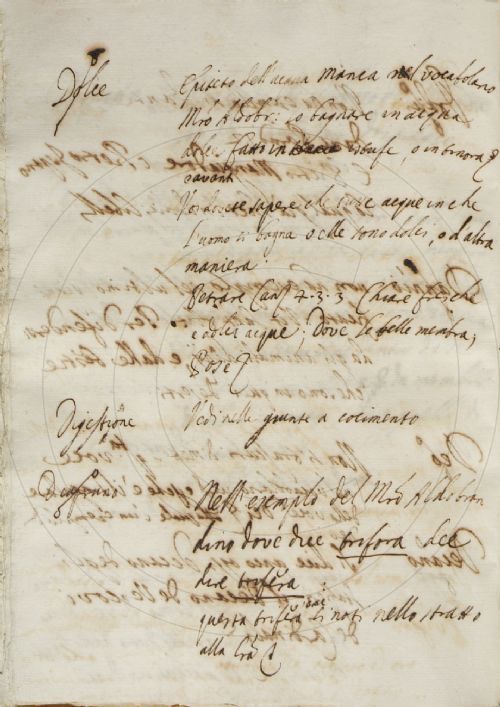 Dolce Epiteto dell'acqua manca nel vocabolario
Mro Aldobr: lo bagnare in acqua
dolce fatto in stufe, o in
davanti
Voi dovete sapere che tutte acque in che
l'uomo si bagna o elle sono dolci, o d'altra
maniera.
Petrar. Canz 7. 3. 3 Chiare fresche
e dolci acque; Dove le belle membra;
Pose
Digestione Vedi nelle giunte a cocimento
Nell'esempio del Mro Aldobran
dino dove dice trifora dee
dire trifera
questa trifera si noti nello stratto
alla